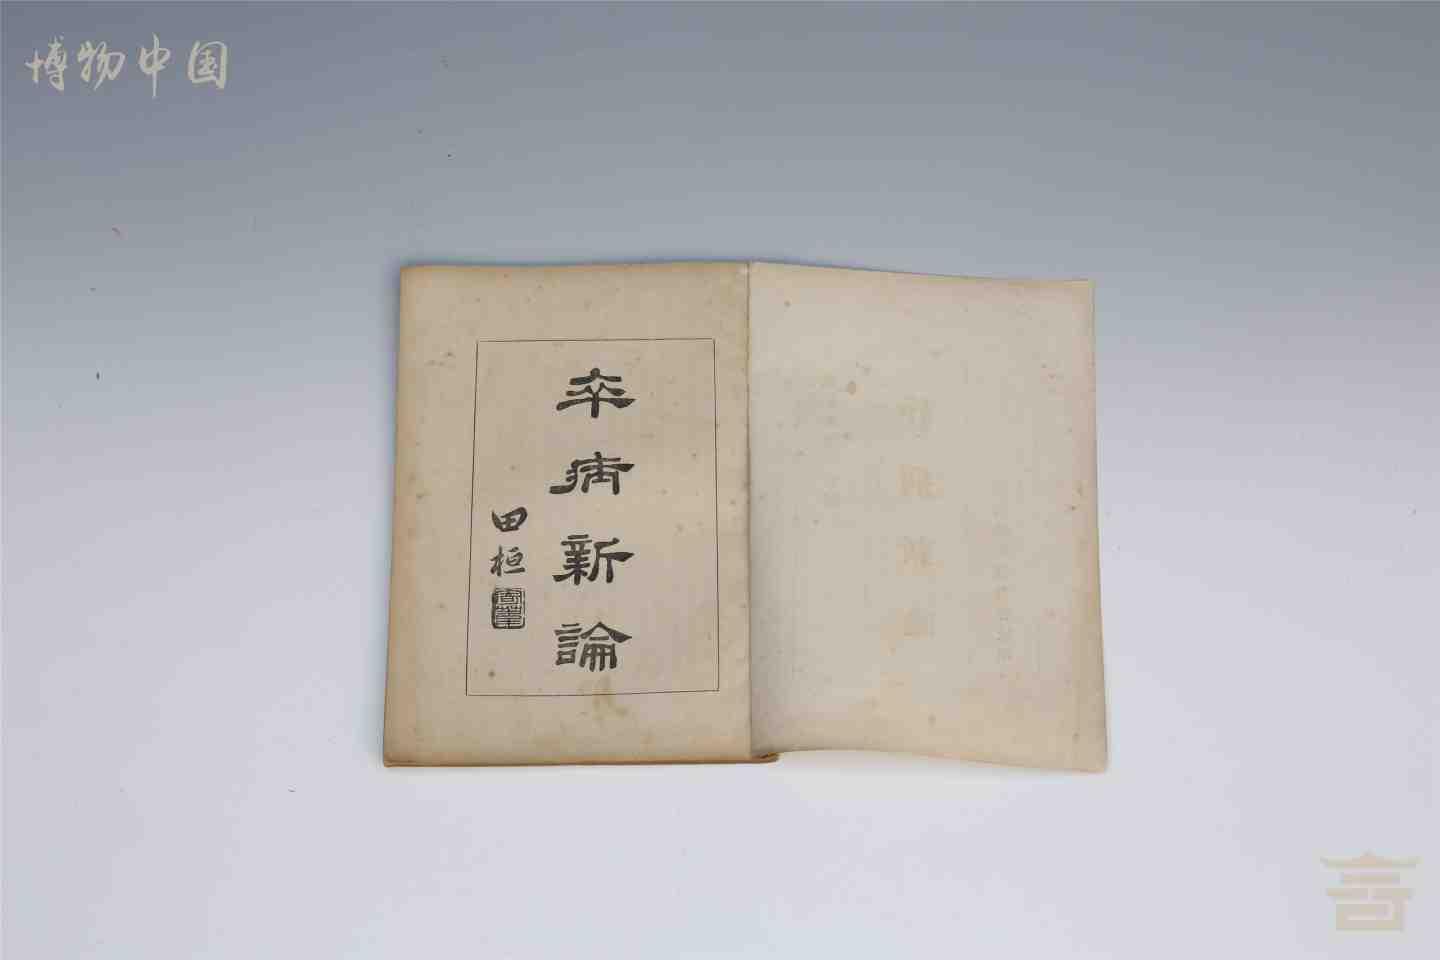 博物中国
卒病新論
田桓
寄葦